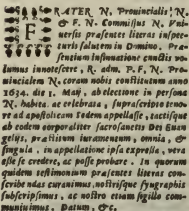 FRATER N. Provincialis, N.
& F. N. Commissus N. Vni-
uersis præsentes literas inspe-
cturis salutem in Domino. Præ-
sentium insinuatione cunctis vo-
lumus innotescere, R. adm. P. F. N. Pro-
uincialem N. coram nobis constitutum anno
1634. die 1. Maij, ab electione in persona
N. habita, ac celebrata, suprascripto teno-
re ad apostolicam sedem appellasse, tactisque
ab eodem corporaliter sacrosanctis Dei Euan
gelijs, præstitum iuramentum, omnia, &
singula, in appellatione ipsa expressa, vera
esse se credere, ac posse probare. In quorum
quidem testimonium præsentes literas con-
scribendas curauimus, nostrisque syngraphis
subscripsimus, ac nostro etiam sigillo com-
muniuimus. Datum &c.